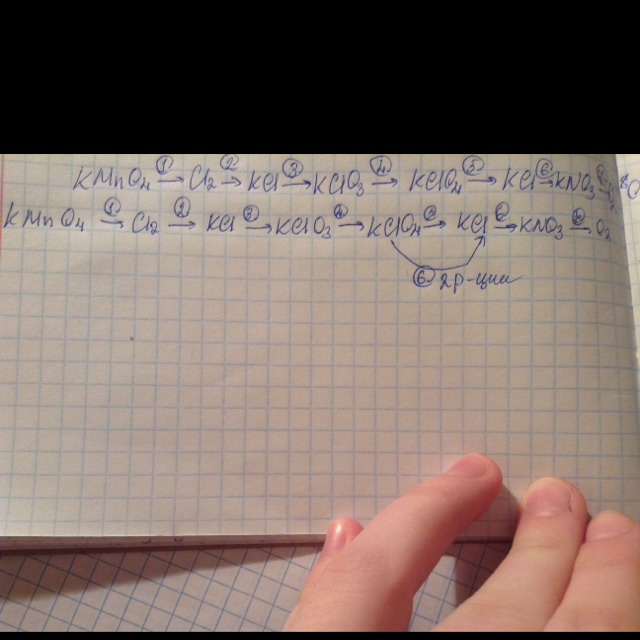 KMnO₄ →① Cl₂ →② KCl →③ KClO₃ →④ KClO₄ →⑤ KCl →⑥ KNO₃
KMnO₄ →① Cl₂ →② KCl →③ KClO₃ →④ KClO₄ → KCl → KNO₃ → O₂
⑥ 2 р-ции